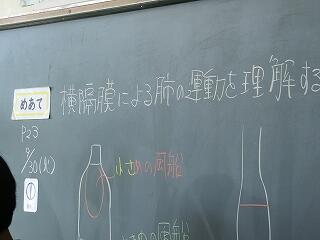 めあて
横隔膜による肺の運動を理解する
P23
9/30(火)
小さめの風船